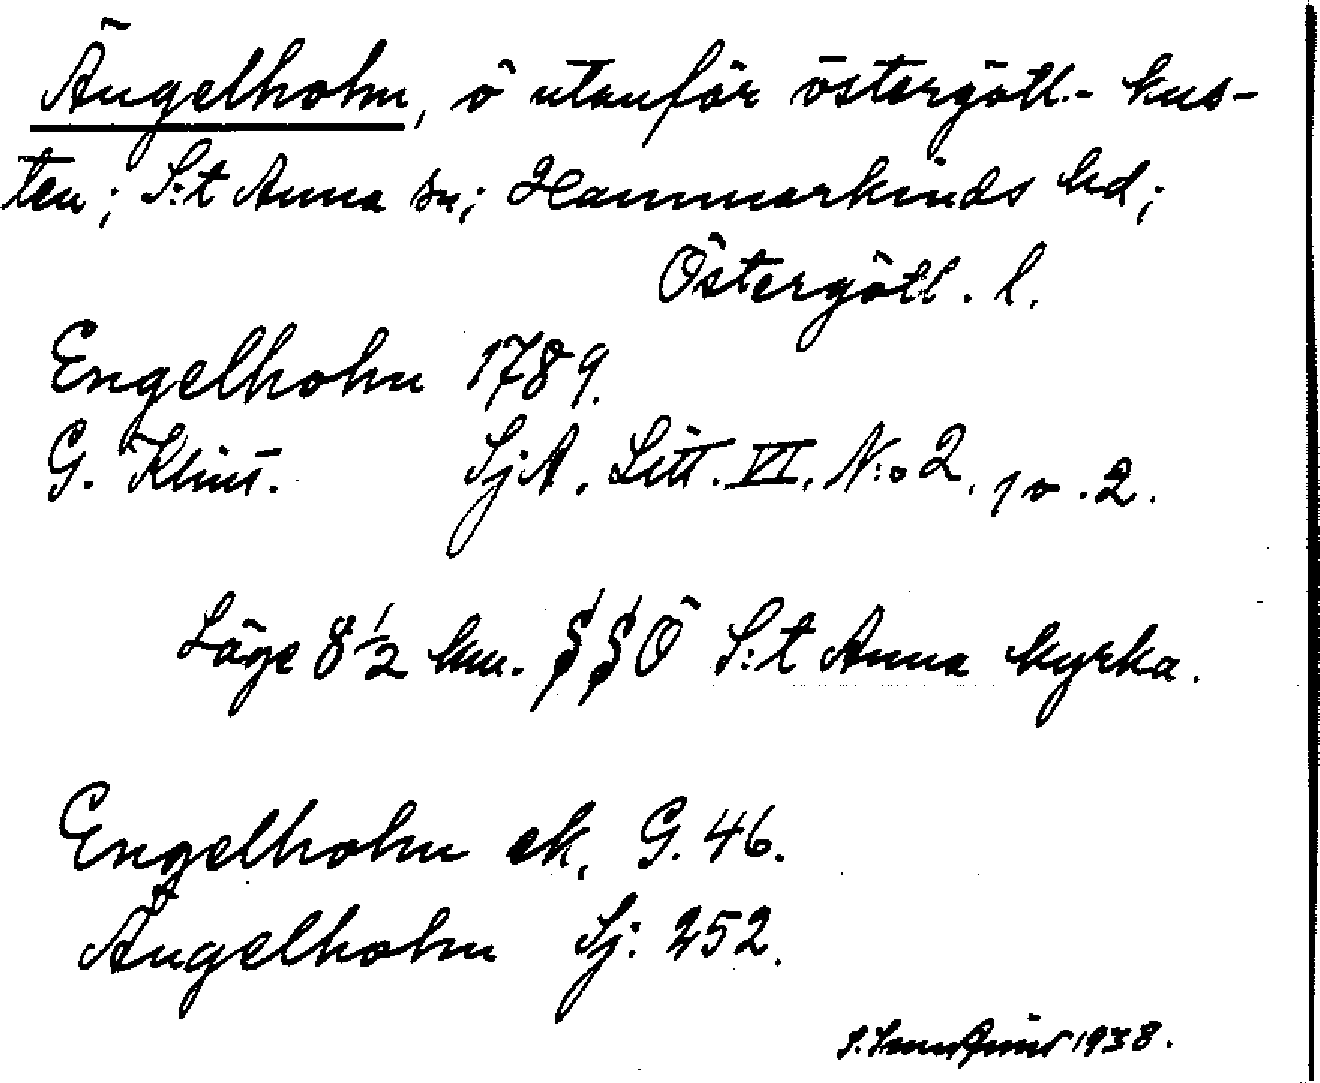 Ängelholm, ö utanför östergötl.- kus-
ten; S:t Anna sn; Hammarkinds hd;
Östergötl. l.
Engelholm 1789.
G. Klint. SjA. Litt. VI. N:o 2. p. 2.
Läge 8 1/2 km. SSÖ S:t Anna kyrka.
Engelholm ek. G. 46.
Ängelholm Sj: 252.
1938.